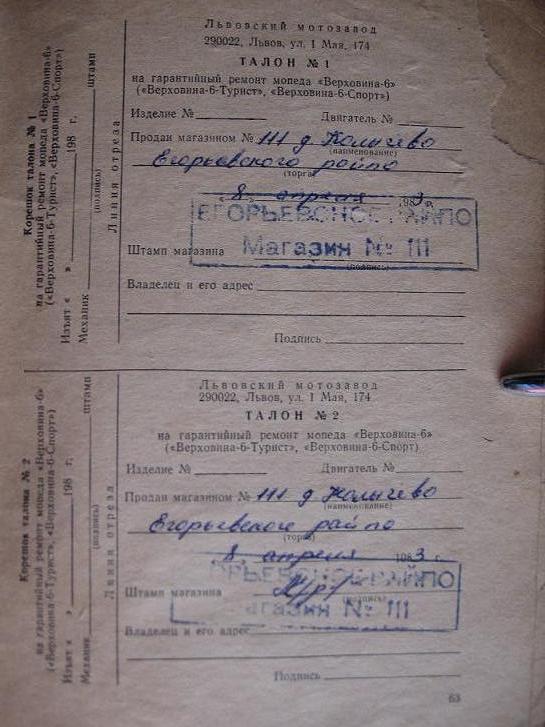 Львовский мотозавод
290022, Львов, ул. 1 Мая, 174
ТАЛОН № 1
на гарантийный ремонт мопеда «Верховина-6»
(«Верховина-6-Турист», «Верховина-6-Спорт»)
Изделие № Двигатель №
Продан магазином № 111 д Колычево
(наименование)
Егорьевского райпо
(торга)
8 апреля 1983 г.
ЕГОРЬЕВСКОЕ РАЙПО
Магазин № 111
Штамп магазина
(подпись)
Владелец и его адрес
Подпись
Корешок талона № 1
на гарантийный ремонт мопеда «Верховина-6»
(«Верховина-6-Турист», «Верховина-6-Спорт»)
Изъят « » 198 г.
Механик штамп
(подпись)
Линия отреза
Львовский мотозавод
290022, Львов, ул. 1 Мая, 174
ТАЛОН № 2
на гарантийный ремонт мопеда «Верховина-6»
(«Верховина-6-Турист», «Верховина-6-Спорт»)
Изделие № Двигатель №
Продан магазином № 111 д Колычево
(наименование)
Егорьевское райпо
(торга)
8 апреля 1983 г.
РЬЕВСКОЕ РАЙПО
агазин № 111
Штамп магазина
(подпись)
Владелец и его адрес
Подпись
Корешок талона № 2
на гарантийный ремонт мопеда «Верховина-6»
(«Верховина-6-Турист», «Верховина-6-Спорт»)
Изъят « » 198 г.
Механик штамп
(подпись)
Линия отреза
63